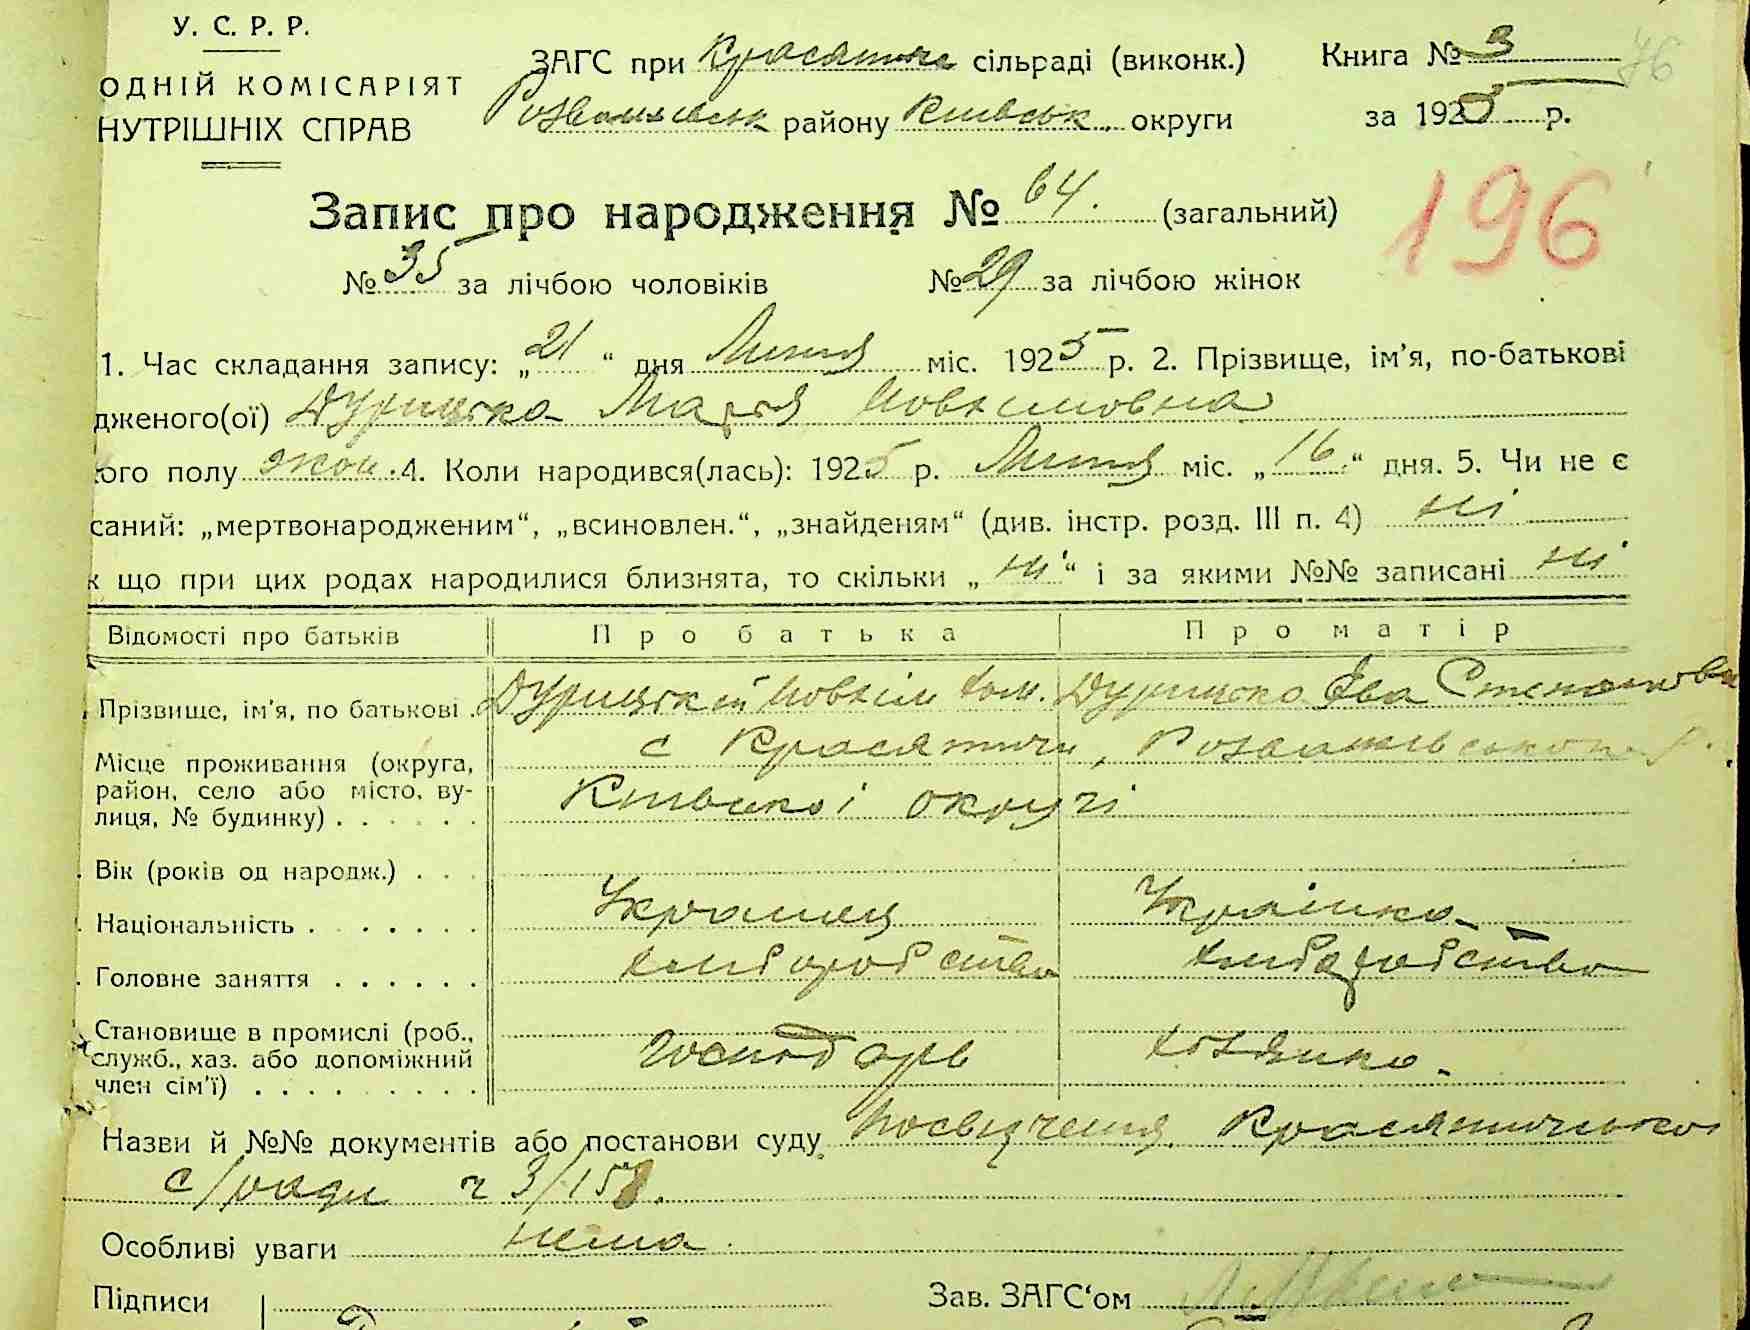 У. С. Р. Р.
ОДНІЙ КОМІСАРІЯТ
НУТРІШНІХ СПРАВ
ЗАГС при Красятич сільраді (виконк.)
Розважівськ району Київськ. округи
Книга № 3
76
за 1925 р.
196
Запис про народження № 64. (загальний)
№ 35 за лічбою чоловіків № 29 за лічбою жінок
1. Час складання запису: „21“ дня Липня міс. 1925 р. 2. Прізвище, ім'я, по-батькові
дженого(ої) Дурицька Марія Йовхимовна
ого полу жон. 4. Коли народився(лась): 1925 р. Липня міс. „16.“ дня. 5. Чи не є
саний: „мертвонародженим“, „всиновлен.“, „знайденям“ (див. інстр. розд. III п. 4) ні
к що при цих родах народилися близнята, то скільки „ні“ і за якими №№ записані ні
Відомості про батьків Про батька Про матір
Прізвище, ім'я, по батькові . Дурицький Йовхім Дурицька Ева Степановна
Місце проживання (округа, с Красятичи, Розважівського р.
район, село або місто, ву- Київської округі
лиця, № будинку) . . . . . .
Вік (років од народж.) . . .
Національність . . . . . . . Українец Українка
Головне заняття . . . . . . хліборобство хліборобство
Становище в промислі (роб.,
служб., хаз. або допоміжний Господарь хозяйка.
член сім'ї) . . . . . . . . .
Назви й №№ документів або постанови суду Посвідчення Красятичської
с/ради ч 3/158.
Особливі уваги нема.
Підписи Зав. ЗАГС‘ом